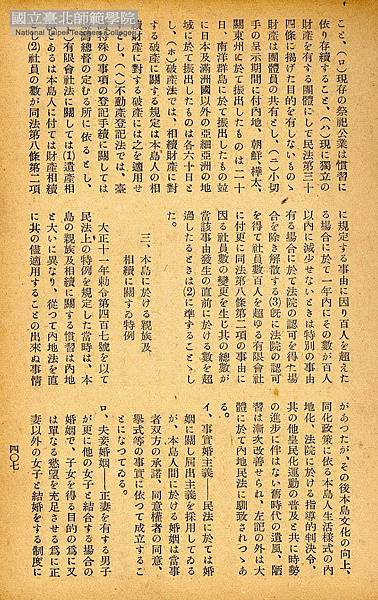 國立臺北師範學院
National Taipei Teachers College
こと、(ロ)現存の祭祀公業は慣習に
依り存續すること、(ハ)現に獨立の
財產を有する團體にして民法第三十
四條に揭げた目的を有しないものゝ
財產は團體員の共有とし、(ニ)小切
手の呈示期間に付內地、朝鮮、樺太、
關東州に於て振出したものは二十
日、南洋群島に於て振出したもの竝
に日本及滿洲國以外の亞細亞洲の地
域に於て振出したものは各六十日と
し、(ホ)破產法では、相續財產に對
する破產に關する規定は本島人の相
續財產に對する破產には之を適用せ
ないし、(ヘ)不動產登記法では、臺
灣特殊の事項の登記手續に關しては
臺灣總督の定むる所に依るとし、
(ト)有限會社法に關しては(1)遺產相
續とあるは本島人に付ては財產相續
とし(2)社員の數が同法第八條第二項
に規定する事由に因り百人を超えた
る場合に於て一年內に其の數が百人
以內に減少せないときは特別の事由
有る場合に於て法院の認可を得た場
合を除き解散する(3)旣に法院の認可
を得て社員數百人を超ゆる有限會社
に付更に同法第八條第二項の事由に
因る社員數の變更を生じ其の總數が
當該事由發生の直前に於ける數を超
過したるときは(2)に準ずることゝし
た。
三、本島に於ける親族及
相續に關する特例
大正十一年勅令第四百七號を以て
民法上の特例を規定した當時は、本
島の親族及相續に關する慣習は內地
と大いに異なり、從つて內地法を直
に其の儘適用することの出來ぬ事情
があつたが、その後本島文化の向上、
同化政策に依る本島人生活樣式の內
地化、法院に於ける指導的判決令、
其の他皇民化運動の普及と共に時勢
の進步に伴はない舊時代の遺風、陋
習は漸次改善せられ、左記の外は大
體に於て內地民法に馴致されつゝあ
る。
イ、事實婚主義——民法に於ては婚
姻に關し屆出主義を採用してゐる
が、本島人間に於ける婚姻は當事
者双方の承諾、同意權者の同意、
擧式等の事實に依つて成立するこ
とになつてゐる。
ロ、夫妾婚姻——正妻を有する男子
が更に他の女子と結合する場合の
婚姻で、子女を得る目的の爲に又
は單なる慾望を充足させる爲に正
妻以外の女子と結婚をする制度に
四〇七